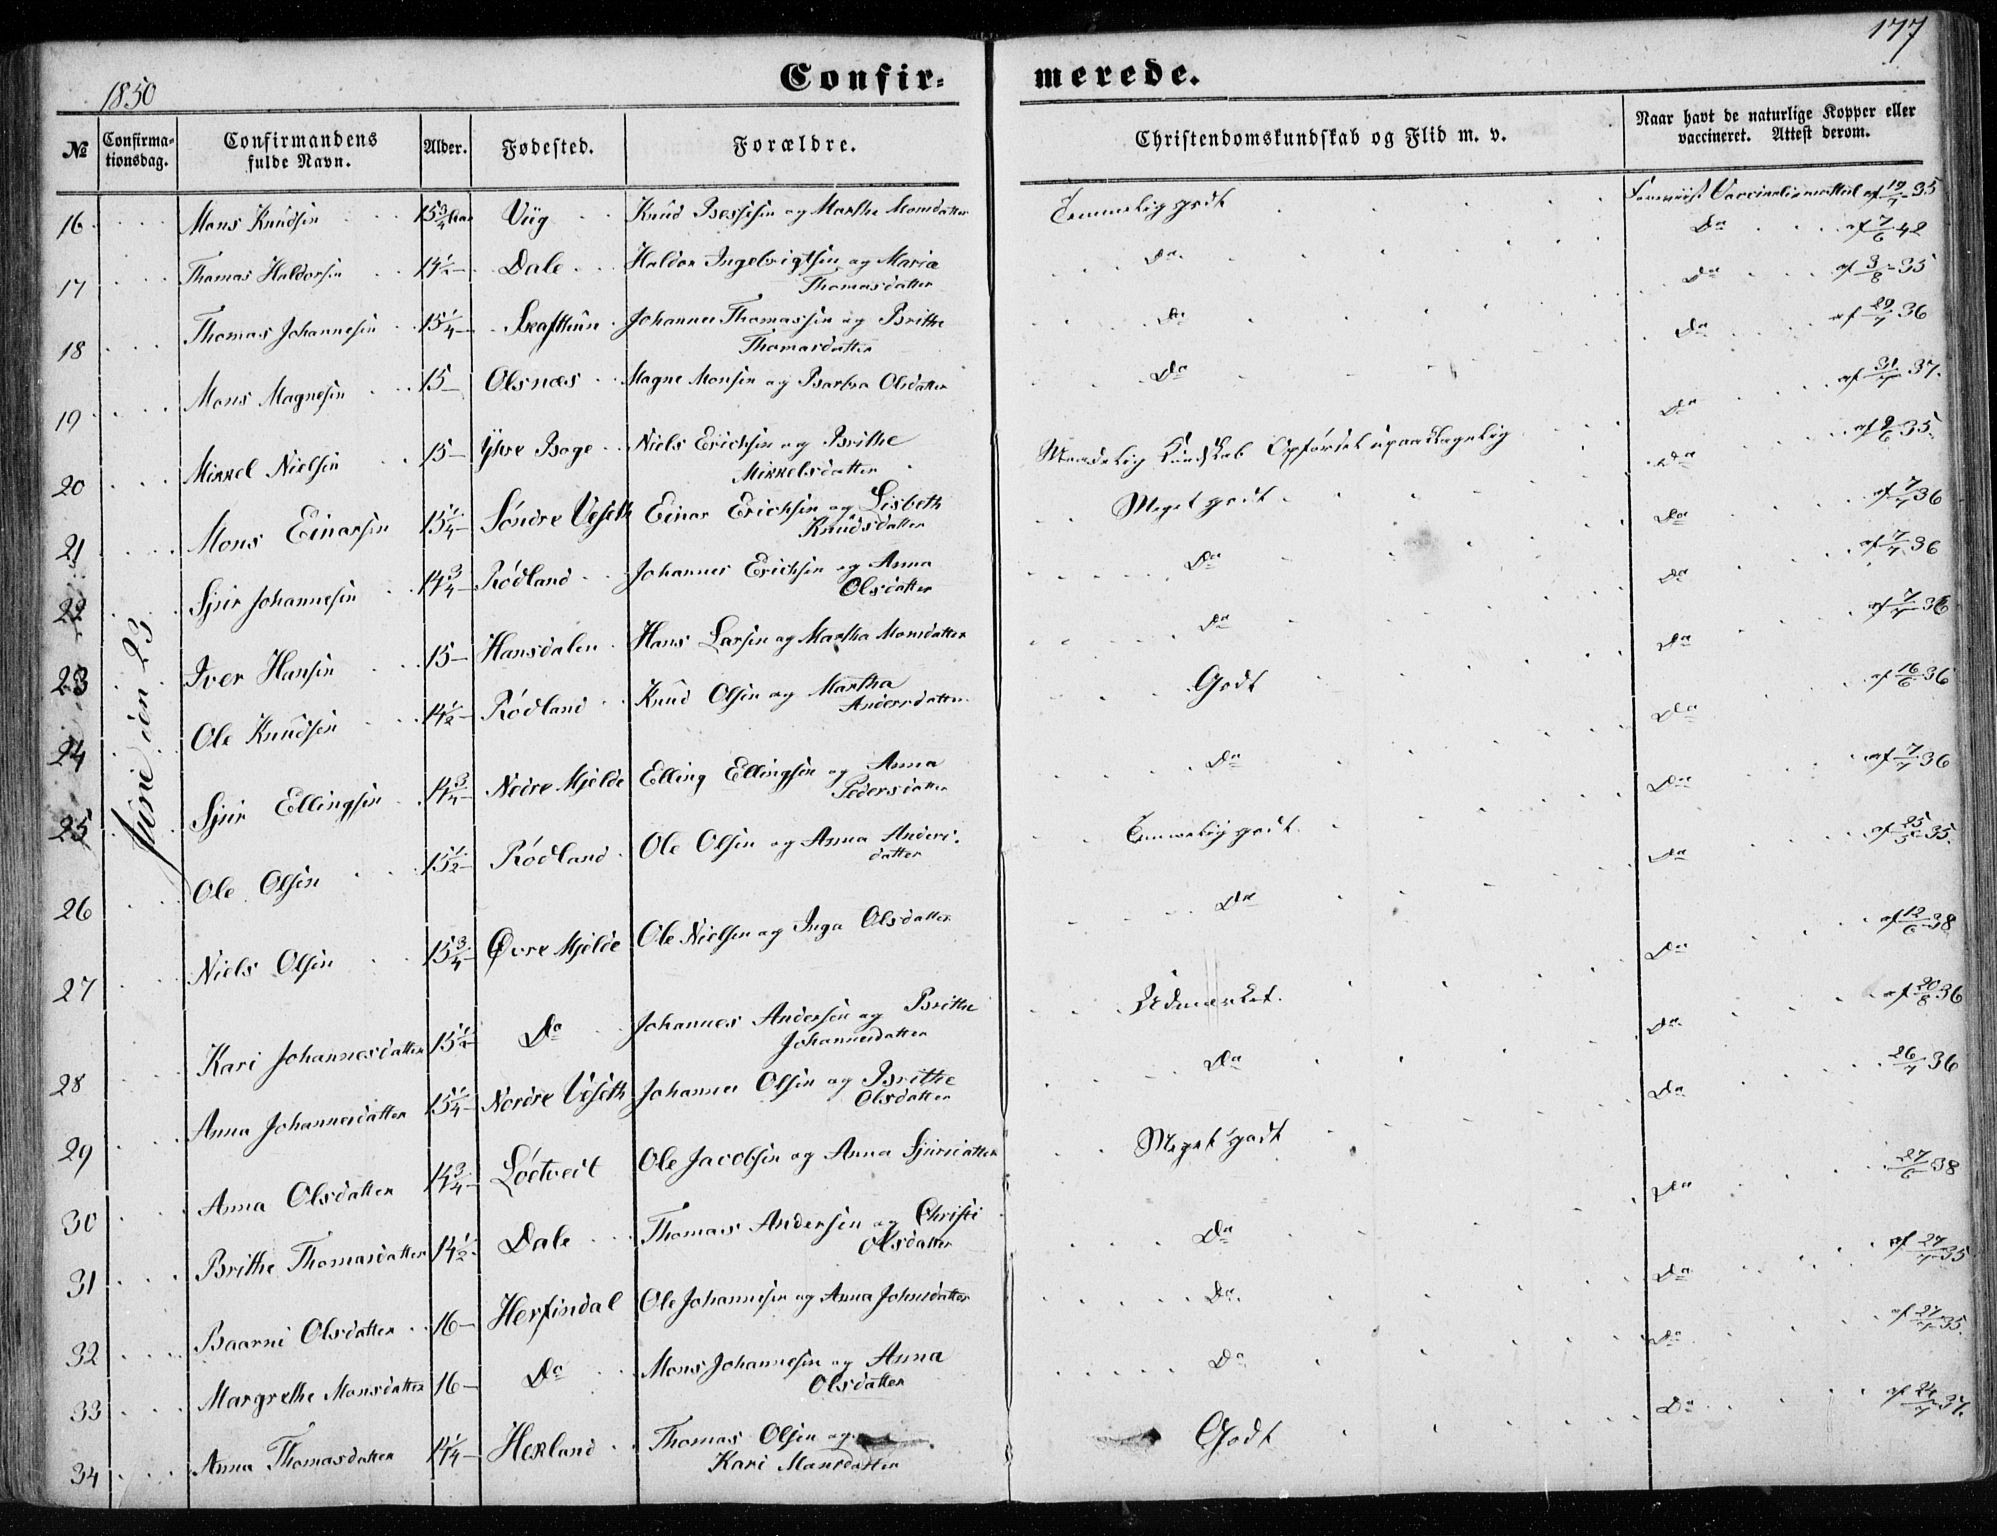 177
1850
Confir= merede.
№ Confirma-tionsdag. Confirmandens fulde Navn. Alder. Fødested. Forældre. Christendomskundskab og Flid m. v. Naar havt de naturlige Kopper eller vaccineret. Attest derom.
Juni den 23
16 Mons Knudsen 15 3/4 Aar Viig Knud Bessesen og Marthe Monsdatter Temmelig godt Fremviist Vaccinationsattest af 19/7 35
17 Thomas Haldorsen 14 1/2 Dale Haldor Ingebrigtsen og Maria Thomasdatter Do Do af 7/6 42
18 Thomas Johannesen 15 1/4 Skafthun Johannes Thomassen og Brithe Thomasdatter Do Do af 3/8 35
19 Mons Magnesen 15 Olsnæs Magne Monsen og Barbra Olsdatter Do Do af 29/7 36
20 Mikkel Nielsen 15 Ytre Boge Niels Erichsen og Brithe Mikkelsdatter Maadelig Kundskab Opførsel upaaklagelig Do af 31/7 37.
21 Mons Einarsen 15 1/4 Søndre Viseth Einar Erichsen og Lisbeth Knudsdatter Meget godt Do af 2/6 35.
22 Sjur Johannesen 14 3/4 Rødland Johannes Erichsen og Anna Olsdatter Do Do af 7/7 36
23 Iver Hansen 15 Hansdalen Hans Larsen og Martha Monsdatter Do Do af 7/7 36
24 Ole Knudsen 14 1/2 Rødland Knud Olsen og Martha Andersdatter Godt Do af 7/7 36
25 Sjur Ellingsen 14 3/4 Nedre Mjelde Elling Ellingsen og Anna Pedersdatter Do Do af 16/6 36
26 Ole Olsen 15 1/2 Rødland Ole Olsen og Anna Anders-datter Temmelig godt. Do af 7/7 36
27 Niels Olsen 15 3/4 Øvre Mjelde Ole Nielsen og Inga Olsdatter Do Do af 25/5 35.
28 Kari Johannesdatter 15 1/2 Do Johannes Andersen og Brithe Johannesdatter Udmærket. Do af 12/6 38
29 Anna Johannesdatter 15 1/4 Nordre Viseth Johannes Olsen og Brithe Olsdatter Do Do af 20/8 36
30 Anna Olsdatter 14 3/4 Løtveit Ole Jacobsen og Anna Sjursdatter Meget godt Do 26/7 36
31 Brithe Thomasdatter 14 1/2 Dale Thomas Andersen og Christi Olsdatter Do Do 27/6 38
32 Baarni Olsdatter 16 Herfindal Ole Johannesen og Anna Johnsdatter Do. Do af 27/7 35
33 Margrethe Monsdatter 16 Do Mons Johannesen og Anna Olsdatter Do Do af 27/7 35.
34 Anna Thomasdatter 14 1/4 Herland Thomas Olsen og Kari Monsdatter Godt Do af 24/7 37.